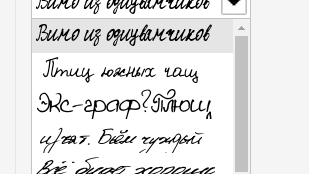 Вино из одуванчиков
Вино из одуванчиков
Птиц южных чащ
Экс-граф? Плюш
и/чат. Бьём чуждый
Всё будет хорошо